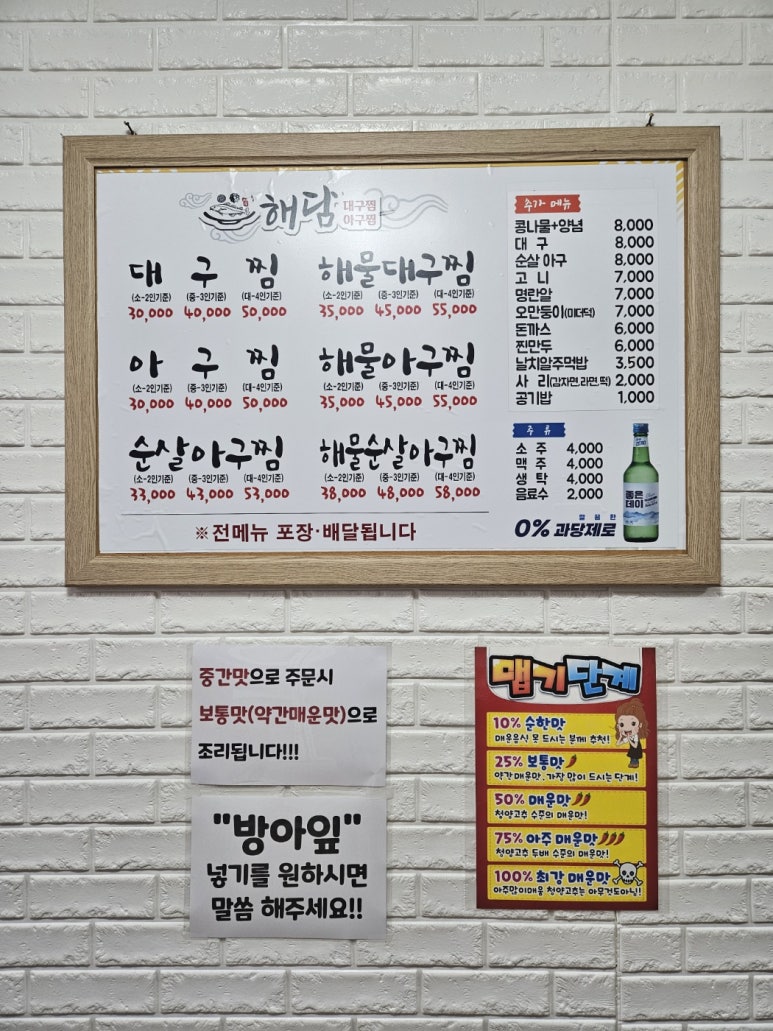 해담 대구찜 아구찜
대 구 찜
(소-2인기준) (중-3인기준) (대-4인기준)
30,000 40,000 50,000
해물대구찜
(소-2인기준) (중-3인기준) (대-4인기준)
35,000 45,000 55,000
아 구 찜
(소-2인기준) (중-3인기준) (대-4인기준)
30,000 40,000 50,000
해물아구찜
(소-2인기준) (중-3인기준) (대-4인기준)
35,000 45,000 55,000
순살아구찜
(소-2인기준) (중-3인기준) (대-4인기준)
33,000 43,000 53,000
해물순살아구찜
(소-2인기준) (중-3인기준) (대-4인기준)
38,000 48,000 58,000
※전메뉴 포장·배달됩니다
추가 메뉴
콩나물+양념 8,000
대 구 8,000
순살 아구 8,000
고 니 7,000
명란알 7,000
오만둥이(미더덕) 7,000
돈까스 6,000
찐만두 6,000
날치알주먹밥 3,500
사 리(감자면,라면,떡) 2,000
공기밥 1,000
주 류
소 주 4,000
맥 주 4,000
생 탁 4,000
음료수 2,000
0% 과당제로
좋은
데이
중간맛으로 주문시
보통맛(약간매운맛)으로
조리됩니다!!!
"방아잎"
넣기를 원하시면
말씀 해주세요!!
맵기단계
10% 순한맛
매운음식 못 드시는 분께 추천!
25% 보통맛
약간매운맛, 가장 많이 드시는 단계!
50% 매운맛
청양고추 수준의 매운맛!
75% 아주 매운맛
청양고추 두배 수준의 매운맛!
100% 최강 매운맛
아주많이매움 청양고추는 아무것도아님!